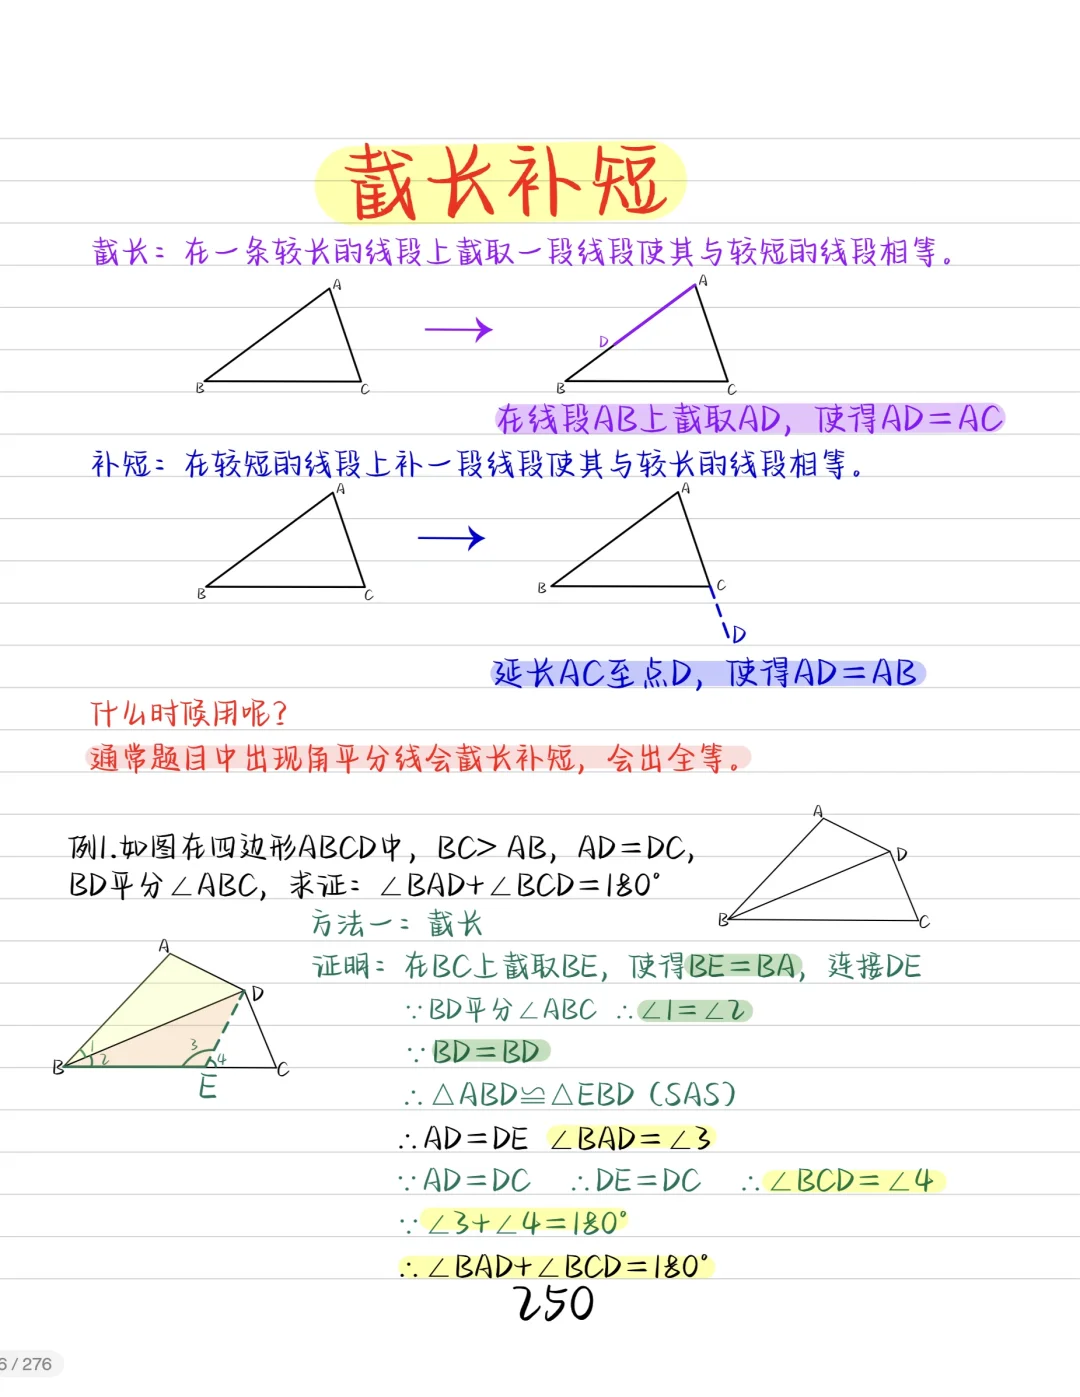 截长补短
截长：在一条较长的线段上截取一段线段使其与较短的线段相等。
A
B
C
A
D
B
C
在线段AB上截取AD，使得AD=AC
补短：在较短的线段上补一段线段使其与较长的线段相等。
A
B
C
A
B
C
D
延长AC至点D，使得AD=AB
什么时候用呢？
通常题目中出现角平分线会截长补短，会出全等。
例1.如图在四边形ABCD中，BC>AB，AD=DC，
BD平分∠ABC，求证：∠BAD+∠BCD=180°
A
D
B
C
方法一：截长
证明：在BC上截取BE，使得BE=BA，连接DE
∵BD平分∠ABC ∴∠1=∠2
∵BD=BD
∴△ABD≌△EBD（SAS）
∴AD=DE ∠BAD=∠3
∵AD=DC ∴DE=DC ∴∠BCD=∠4
∵∠3+∠4=180°
∴∠BAD+∠BCD=180°
A
D
1
2
3
4
B
E
C
250
6 / 276